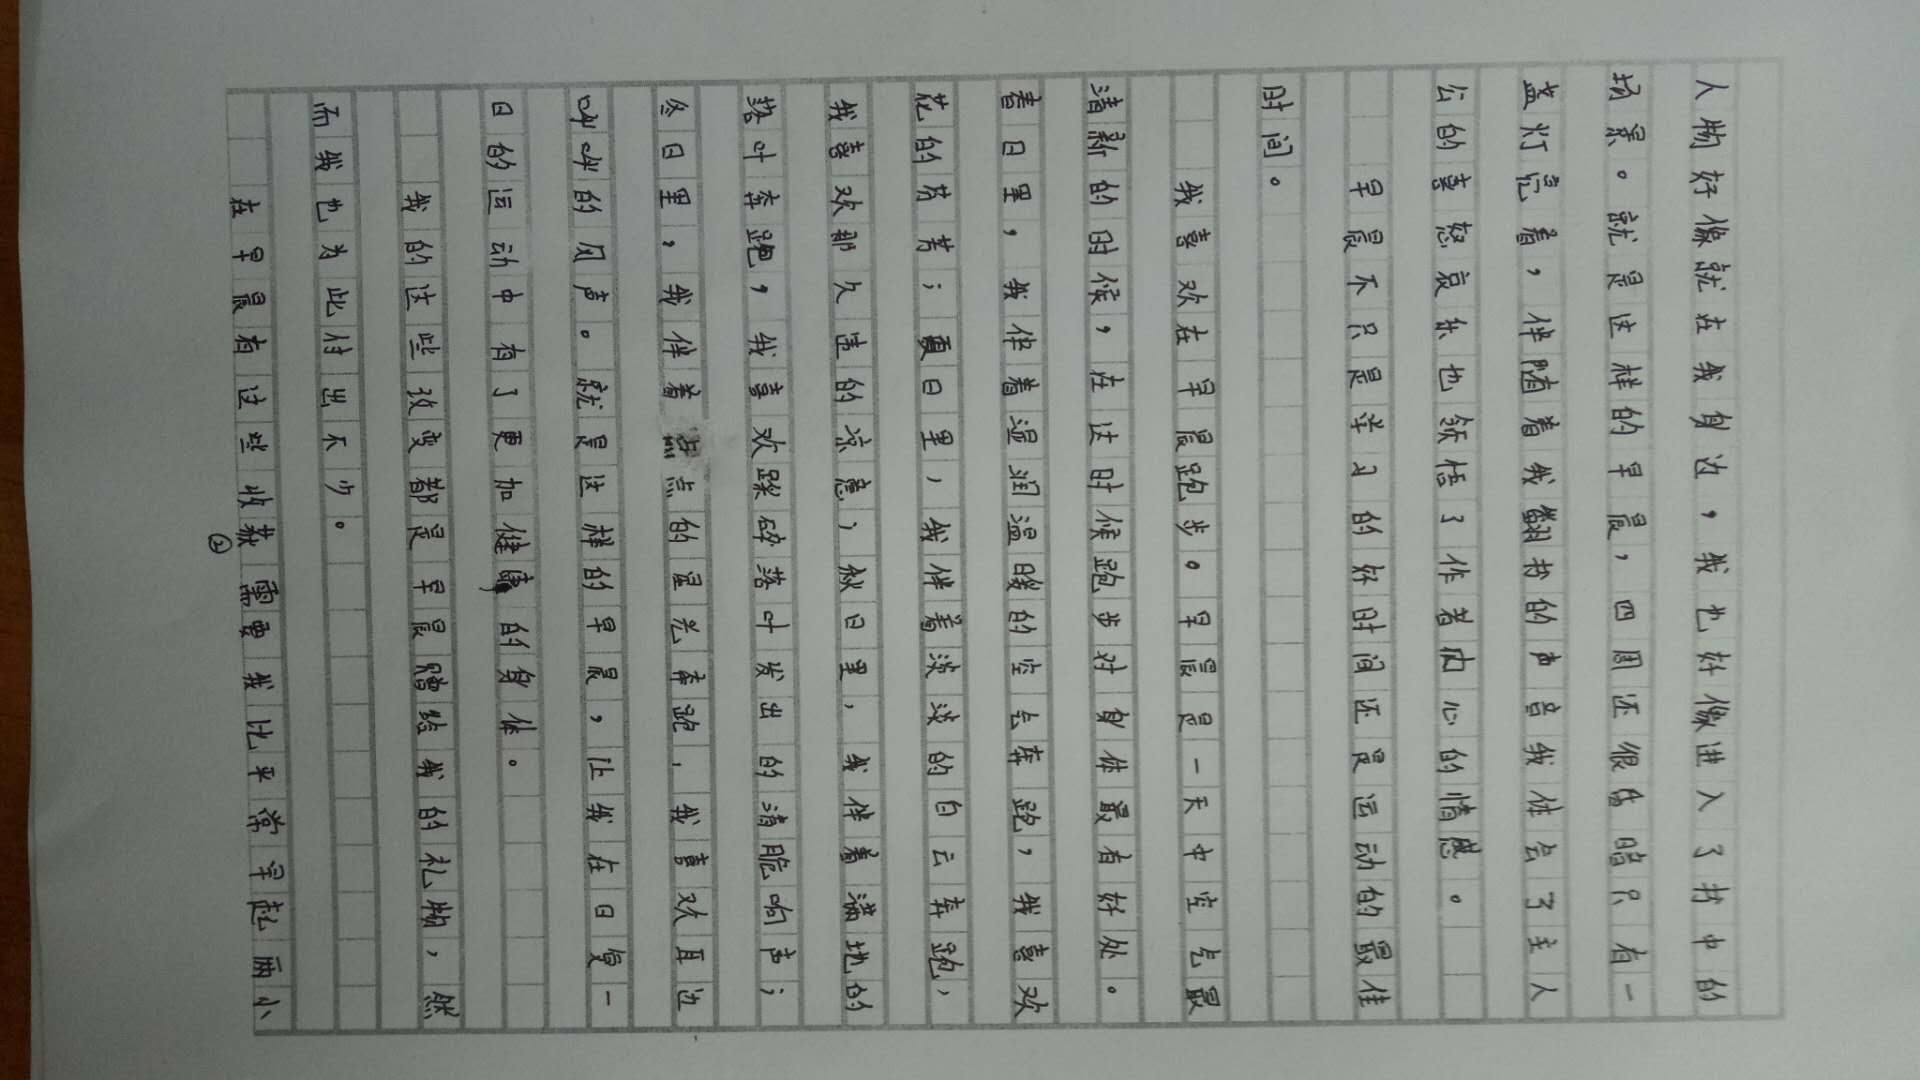 人物好像就在我身边，我也好像进入了书中的
场景。就是这样的早晨，四周还很昏暗只有一
盏灯亮着，伴随着我翻书的声音我体会了主人
公的喜怒哀乐也领悟了作者内心的情感。
早晨不只是学习的好时间还是运动的最佳
时间。
我喜欢在早晨跑步。早晨是一天中空气最
清新的时候，在这时候跑步对身体最有好处。
春日里，我伴着温润温暖的空气奔跑，我喜欢
花的芬芳；夏日里，我伴着淡淡的白云奔跑，
我喜欢那久违的凉意；秋日里，我伴着满地的
落叶奔跑，我喜欢踩碎落叶发出的清脆响声；
冬日里，我伴着点点的星光奔跑，我喜欢耳边
呼呼的风声。就是这样的早晨，让我在日复一
日的运动中有了更加健康的身体。
我的这些改变都是早晨赠给我的礼物，然
而我也为此付出不少。
在早晨有这些收获需要我比平常早起两小
②